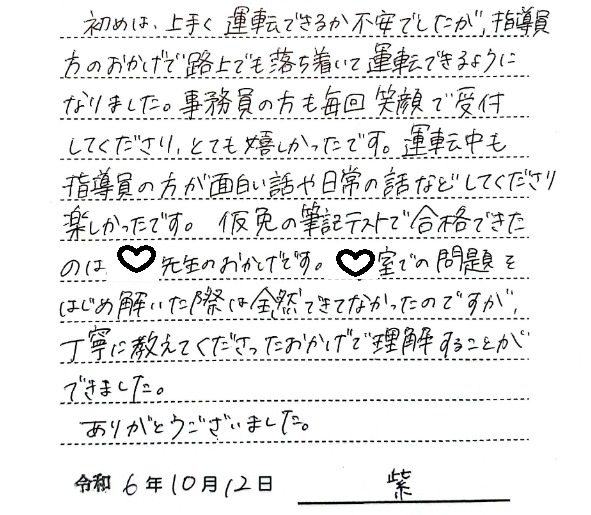 初めは、上手く運転できるか不安でしたが、指導員
方のおかげで路上でも落ち着いて運転できるように
なりました。事務員の方も毎回笑顔で受付
してくださり、とても嬉しかったです。運転中も
指導員の方が面白い話や日常の話などしてくださり
楽しかったです。仮免の筆記テストで合格できた
のは♡先生のおかげです。♡室での問題を
はじめ解いた際は全然できてなかったのですが、
丁寧に教えてくださったおかげで理解することが
できました。
ありがとうございました。
令和6年10月12日 紫